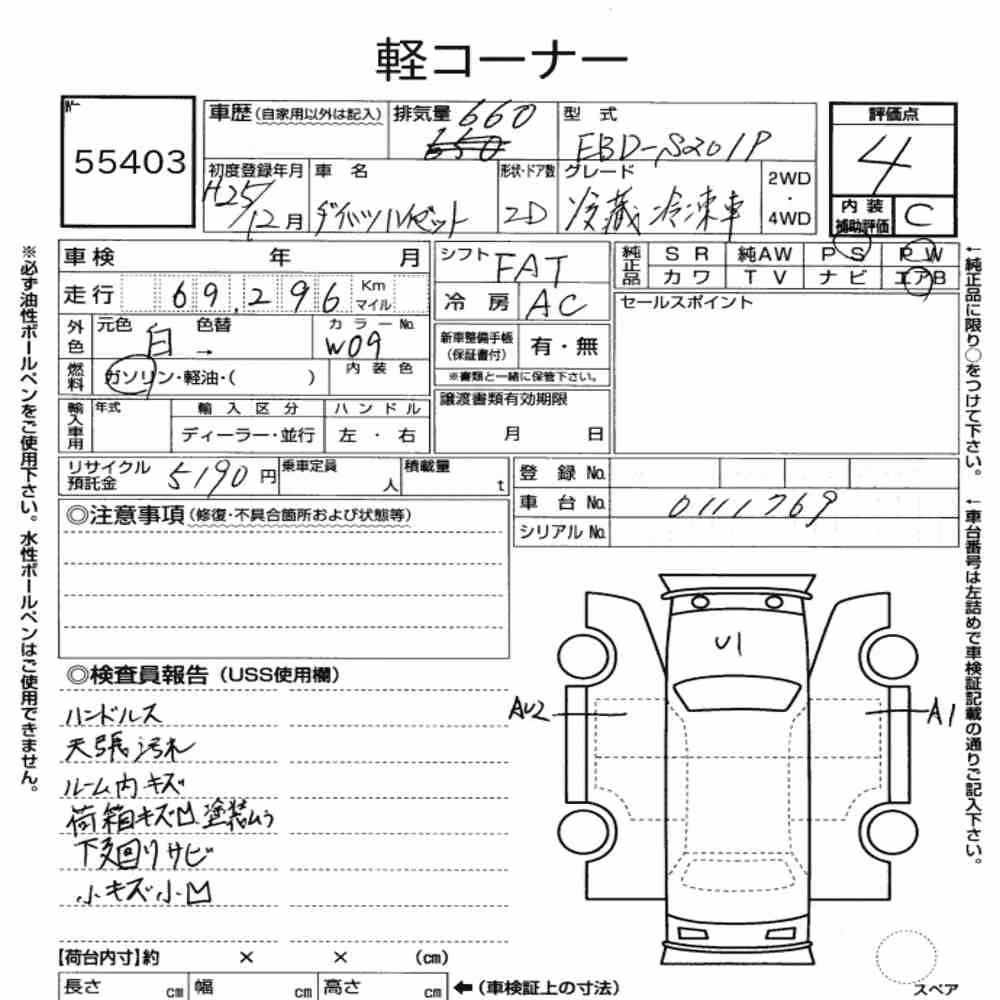 軽コーナー
No.
55403
車歴(自家用以外は記入)
排気量 660
650
型式
EBD-S201P
評価点
4
初度登録年月
H25/12月
車名
ダイハツハイゼット
形状・ドア数
2D
グレード
冷蔵冷凍車
2WD
・
4WD
内装
補助評価
C
車検 年 月
シフト FAT
純正品
SR 純AW PS PW
カワ TV ナビ エアB
走行 69,296 Km
マイル
冷房 AC
セールスポイント
外色
元色 白 色替 →
カラーNo.
W09
新車整備手帳
(保証書付)
有・無
※書類と一緒に保管下さい。
燃料
ガソリン・軽油・( )
内装色
譲渡書類有効期限
月 日
輸入車用
年式
輸入区分
ハンドル
ディーラー・並行
左・右
リサイクル
預託金
5190円
乗車定員
人
積載量
t
登録No.
車台No. 0111769
シリアルNo.
◎注意事項(修復・不具合箇所および状態等)
◎検査員報告(USS使用欄)
ハンドルス
天張汚れ
ルーム内キズ
荷箱キズ凹塗装ムラ
下廻りサビ
小キズ小凹
U1
AU2
A1
【荷台内寸】約 × × (cm)
長さ cm 幅 cm 高さ cm
←(車検証上の寸法)
スペア
※必ず油性ボールペンをご使用下さい。水性ボールペンはご使用できません。
←純正品に限り○をつけて下さい。
←車台番号は左詰めで車検証記載の通りご記入下さい。